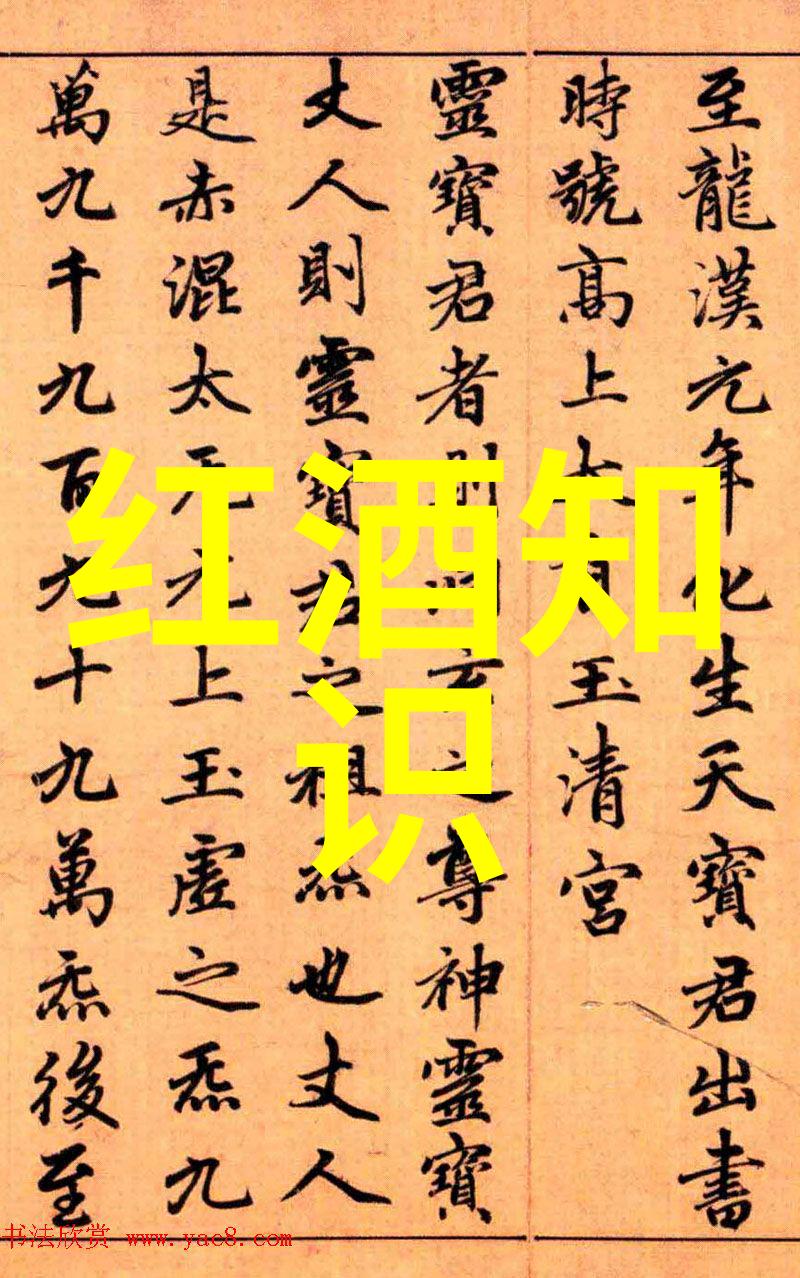 至龍漢元年化生天寶君出書
時號高上大有玉清宮
靈寶君者則洞玄之尊神靈寶
丈人則靈寶君之祖炁也丈人
是赤混太无元上玉虛之炁九
萬九千九百九十九萬炁後至
红酒知
识
书法欣赏 www.yac8.com